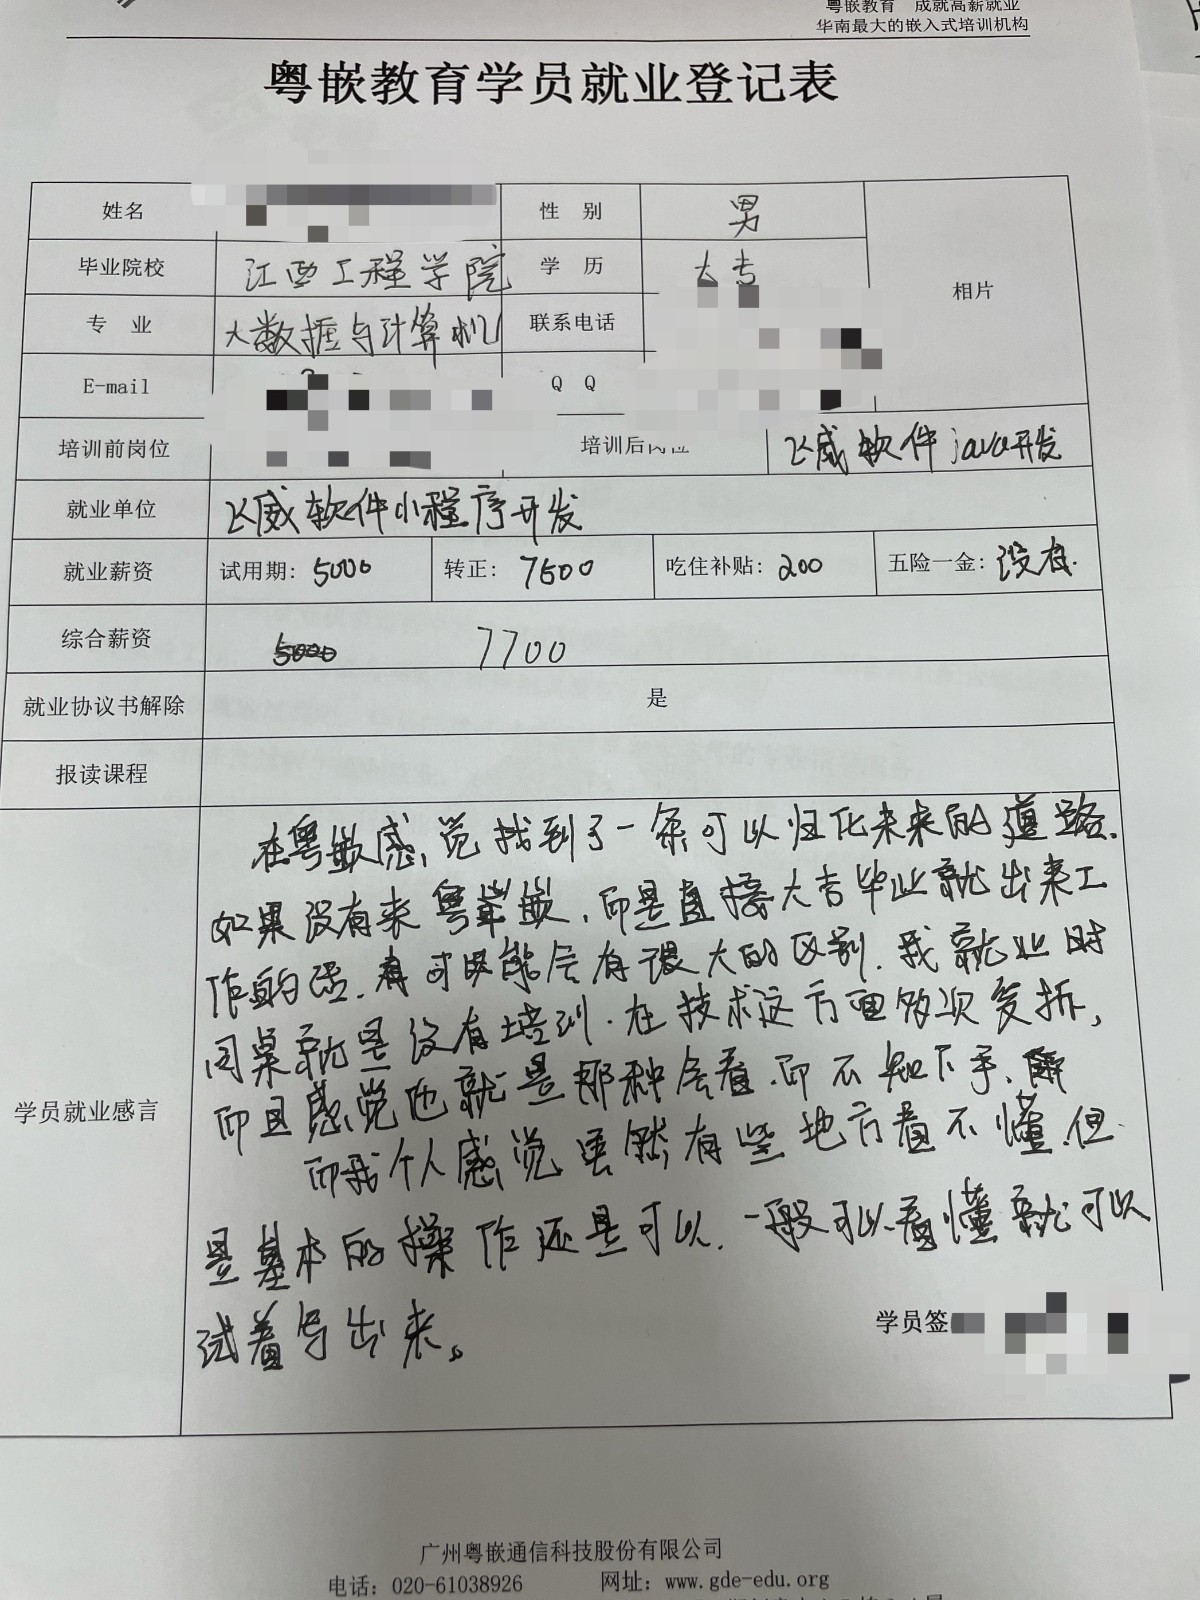 粤嵌教育 成就高薪就业
华南最大的嵌入式培训机构
粤嵌教育学员就业登记表
姓名 性 别 男 相片
毕业院校 江西工程学院 学 历 大专
专 业 大数据与计算机 联系电话
E-mail Q Q
培训前岗位 培训后岗位 飞威软件java开发
就业单位 飞威软件小程序开发
就业薪资 试用期: 5000 转正: 7500 吃住补贴: 200 五险一金: 没有.
综合薪资 5000 7700
就业协议书解除 是
报读课程
学员就业感言
在粤嵌感觉找到了一条可以归化未来的道路.
如果没有来粤嵌,而是直接大专毕业就出来工
作的话.有可能会有很大的区别.我就业时
同桌就是没有培训.在技术这方面多次复拆,
而且感觉他就是那种会看.而不知下手、
而我个人感觉虽然有些地方看不懂.但
是基本的操作还是可以.一般可以看懂就可以
试着写出来。
学员签
广州粤嵌通信科技股份有限公司
电话: 020-61038926 网址: www.gde-edu.org